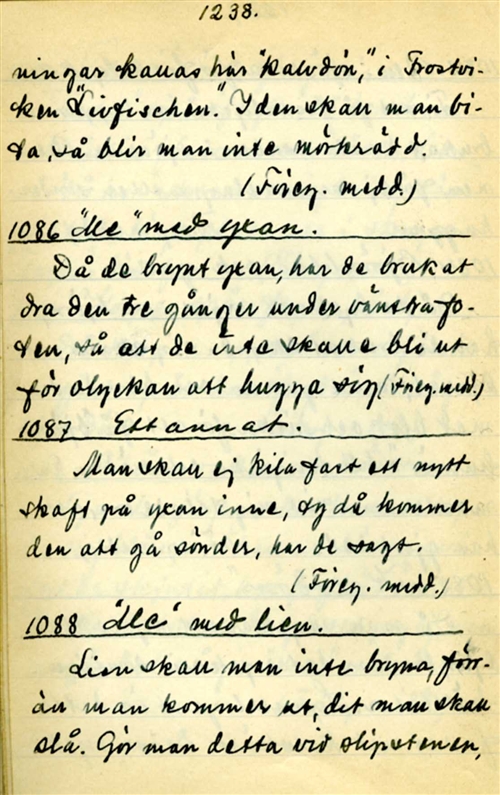 1238.
ningar kallas här "kalvdön," i Frostvi-
ken "Livfischen." I den skall man bi-
ta, så blir man inte mörkrädd.
(Föreg. medd.)
1086 "Me" med yxan.
Då de brynt yxan, har de brukat
dra den tre gånger under vänstra fo-
ten, så att de inte skulle bli ut
för olyckan att hugga sig (Föreg. medd.)
1087 Ett annat.
Man skall ej kila fast ett nytt
skaft på yxan inne, ty då kommer
den att gå sönder, har de sagt.
(Föreg. medd.)
1088 "Me" med lien.
Lien skall man inte bryna, förr-
än man kommer ut, dit man skall
slå. Gör man detta vid slipstenen,